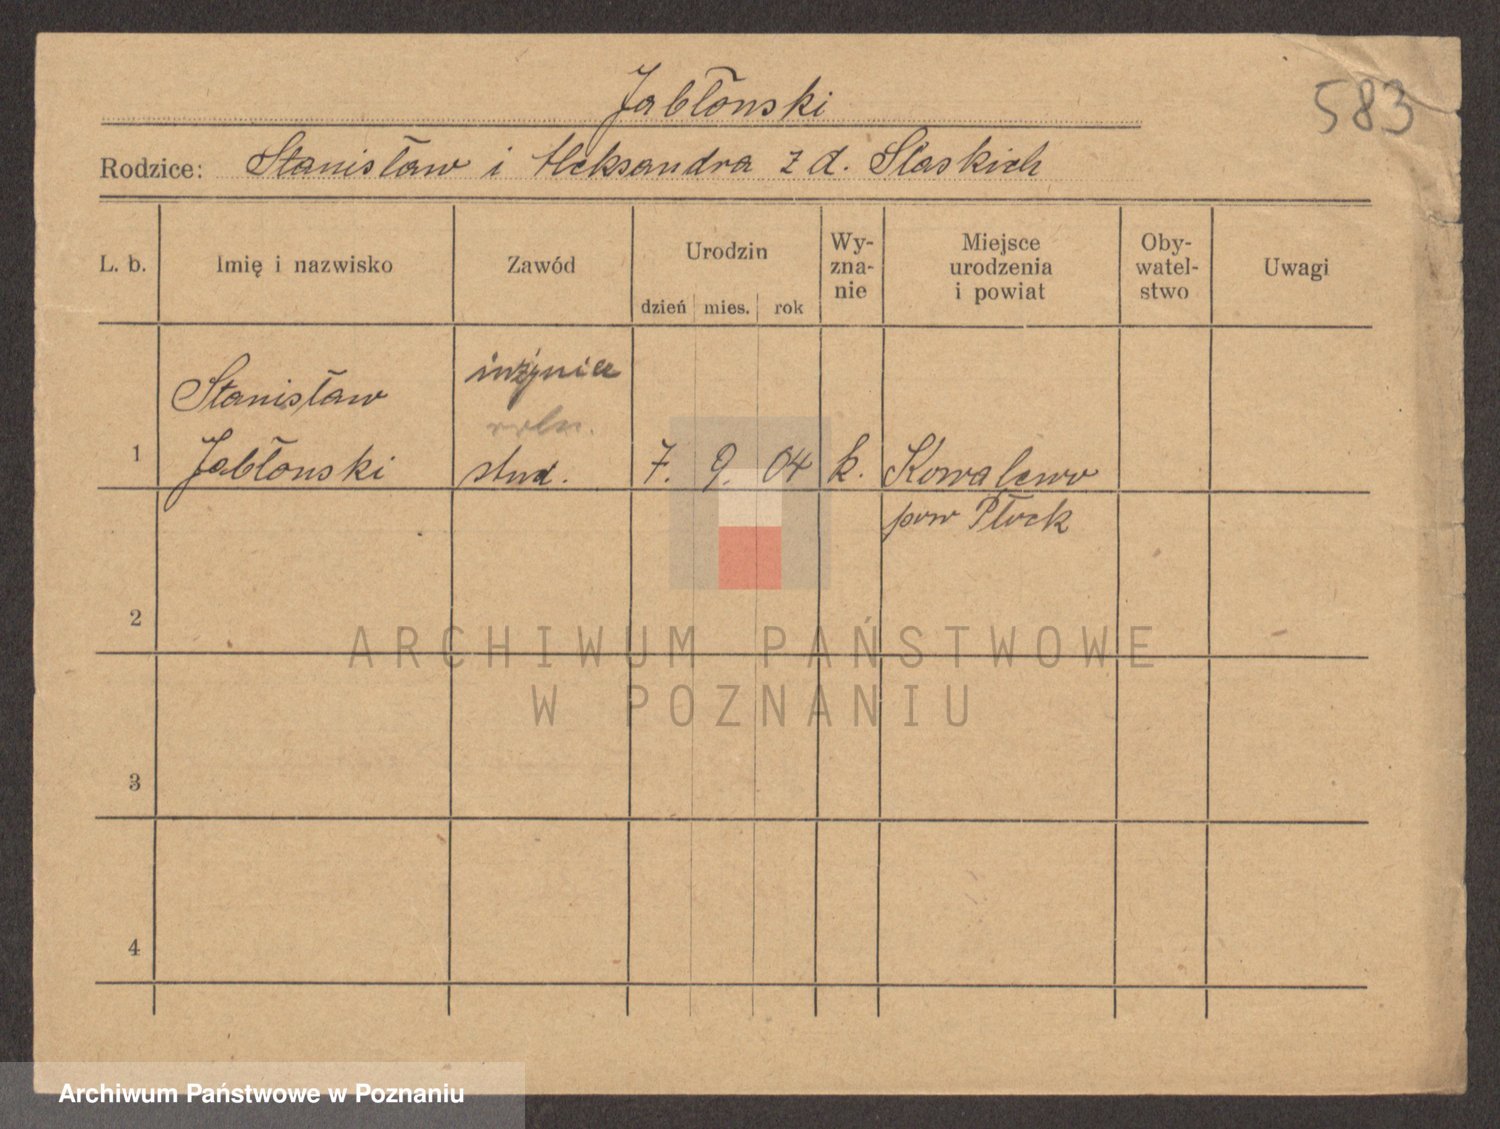 583
Jabłonski
Rodzice: Stanisław i Aleksandra z d. Slaskich
L. b.
Imię i nazwisko
Zawód
Urodzin
dzień mies. rok
Wy-
zna-
nie
Miejsce
urodzenia
i powiat
Oby-
watel-
stwo
Uwagi
1
Stanisław
Jabłonski
stud.
7. 9. 04
k.
Kowalewo
pow Płock
2
3
4
ARCHIWUM PAŃSTWOWE
W POZNANIU
Archiwum Państwowe w Poznaniu